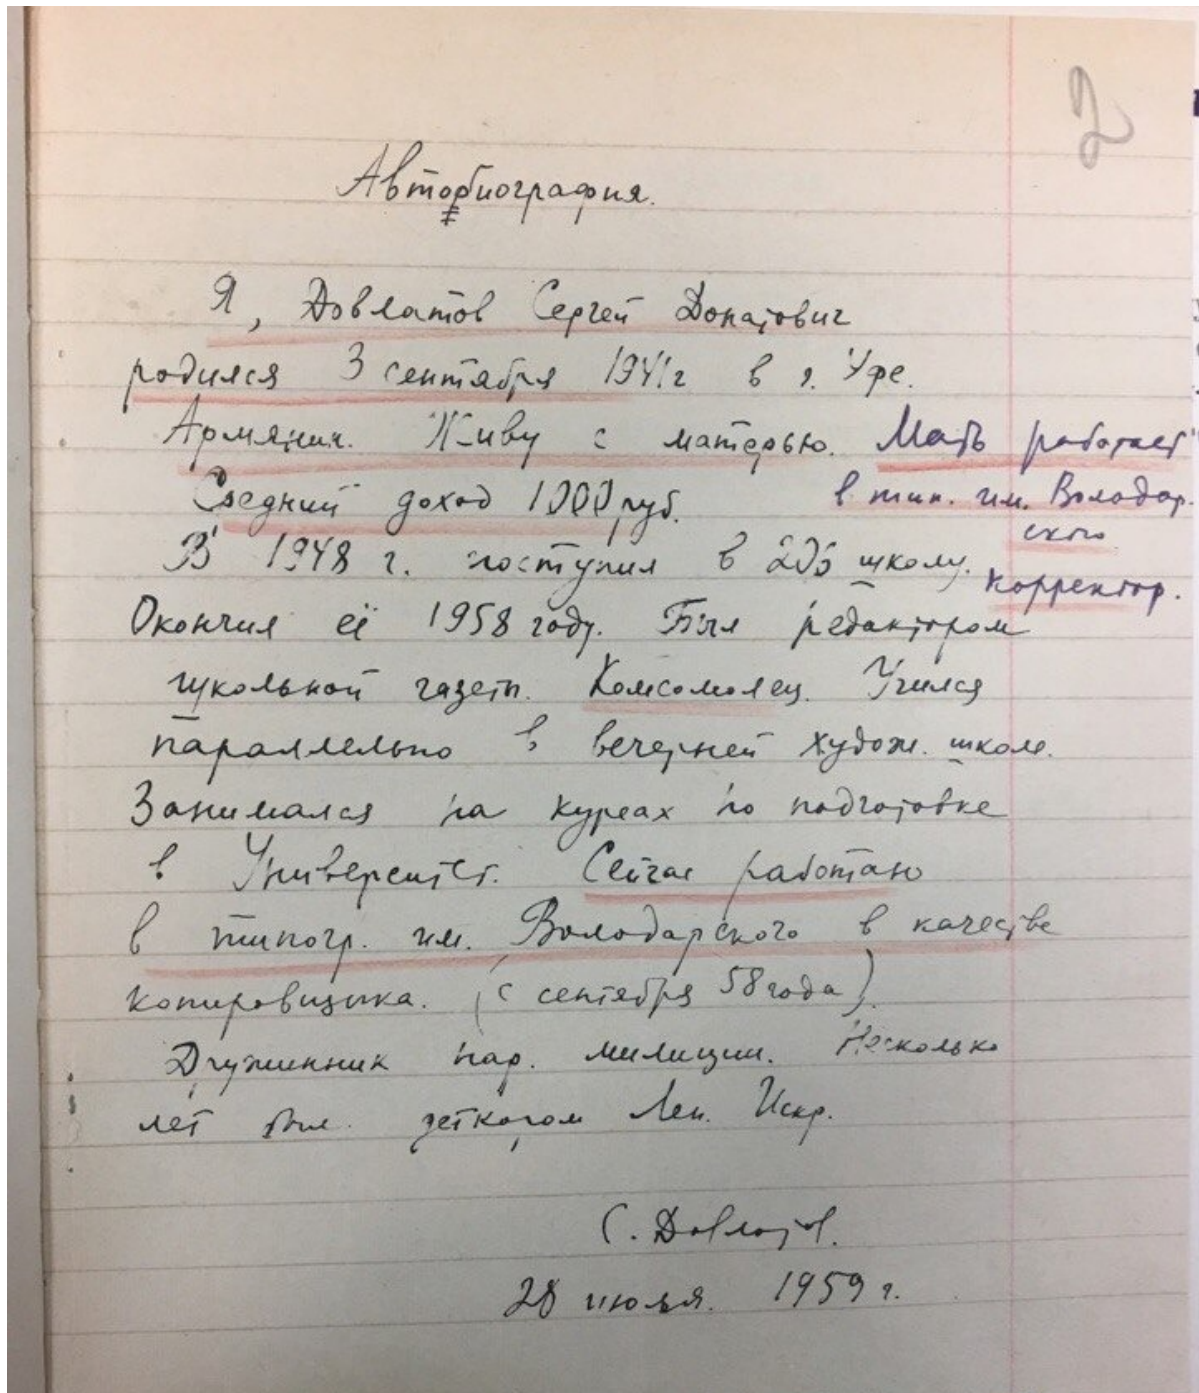 2
Автобиография.
Я, Довлатов Сергей Донатович
родился 3 сентября 1941 г в г. Уфе.
Армянин. Живу с матерью. Мать работает
Средний доход 1000 руб. в тип. им. Володар.
ского
В 1948 г. поступил в 206 школу. корректор.
Окончил её 1958 году. Был редактором
школьной газеты. Комсомолец. Учился
параллельно в вечерней худож. школе.
Занимался на курсах по подготовке
в Университет. Сейчас работаю
в типогр. им. Володарского в качестве
копировщика. (с сентября 58 года).
Дружинник нар. милиции. Несколько
лет был деткором Лен. Искр.
С. Довлатов.
28 июля. 1959 г.